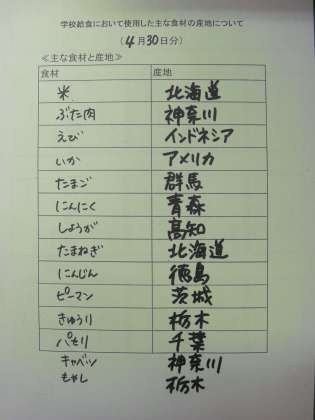 学校給食において使用した主な食材の産地について
(4月30日分)
≪主な食材と産地≫
食材 産地
米 北海道
ぶた肉 神奈川
えび インドネシア
いか アメリカ
たまご 群馬
にんにく 青森
しょうが 高知
たまねぎ 北海道
にんじん 徳島
ピーマン 茨城
きゅうり 栃木
パセリ 千葉
キャベツ 神奈川
もやし 栃木